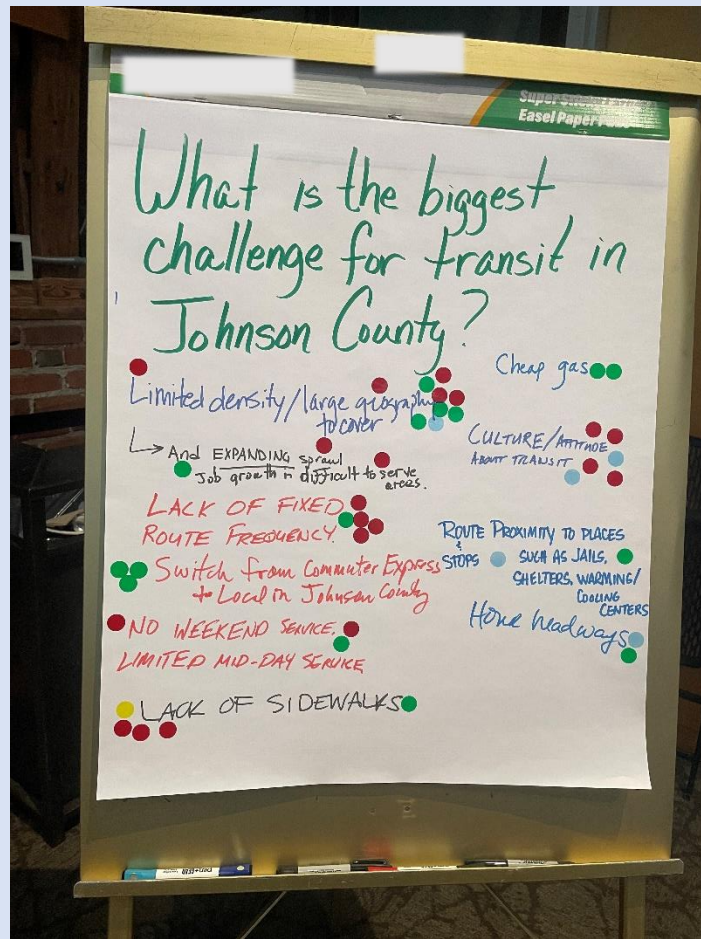 Super Sticky
Easel Paper Pads
What is the biggest
challenge for transit in
Johnson County?
Limited density/large geography
to cover
And EXPANDING sprawl
Job growth in difficult to serve
areas.
LACK OF FIXED
ROUTE FREQUENCY.
Switch from Commuter Express
to Local in Johnson County
NO WEEKEND SERVICE.
LIMITED MID-DAY SERVICE
LACK OF SIDEWALKS
Cheap gas
CULTURE/ATTITUDE
ABOUT TRANSIT
ROUTE PROXIMITY TO PLACES
& STOPS SUCH AS JAILS,
SHELTERS, WARMING/
COOLING
CENTERS
Hour headways